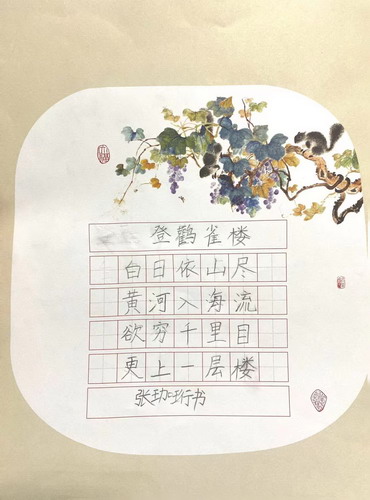 登鹳雀楼
白日依山尽
黄河入海流
欲穷千里目
更上一层楼
张珈珩书